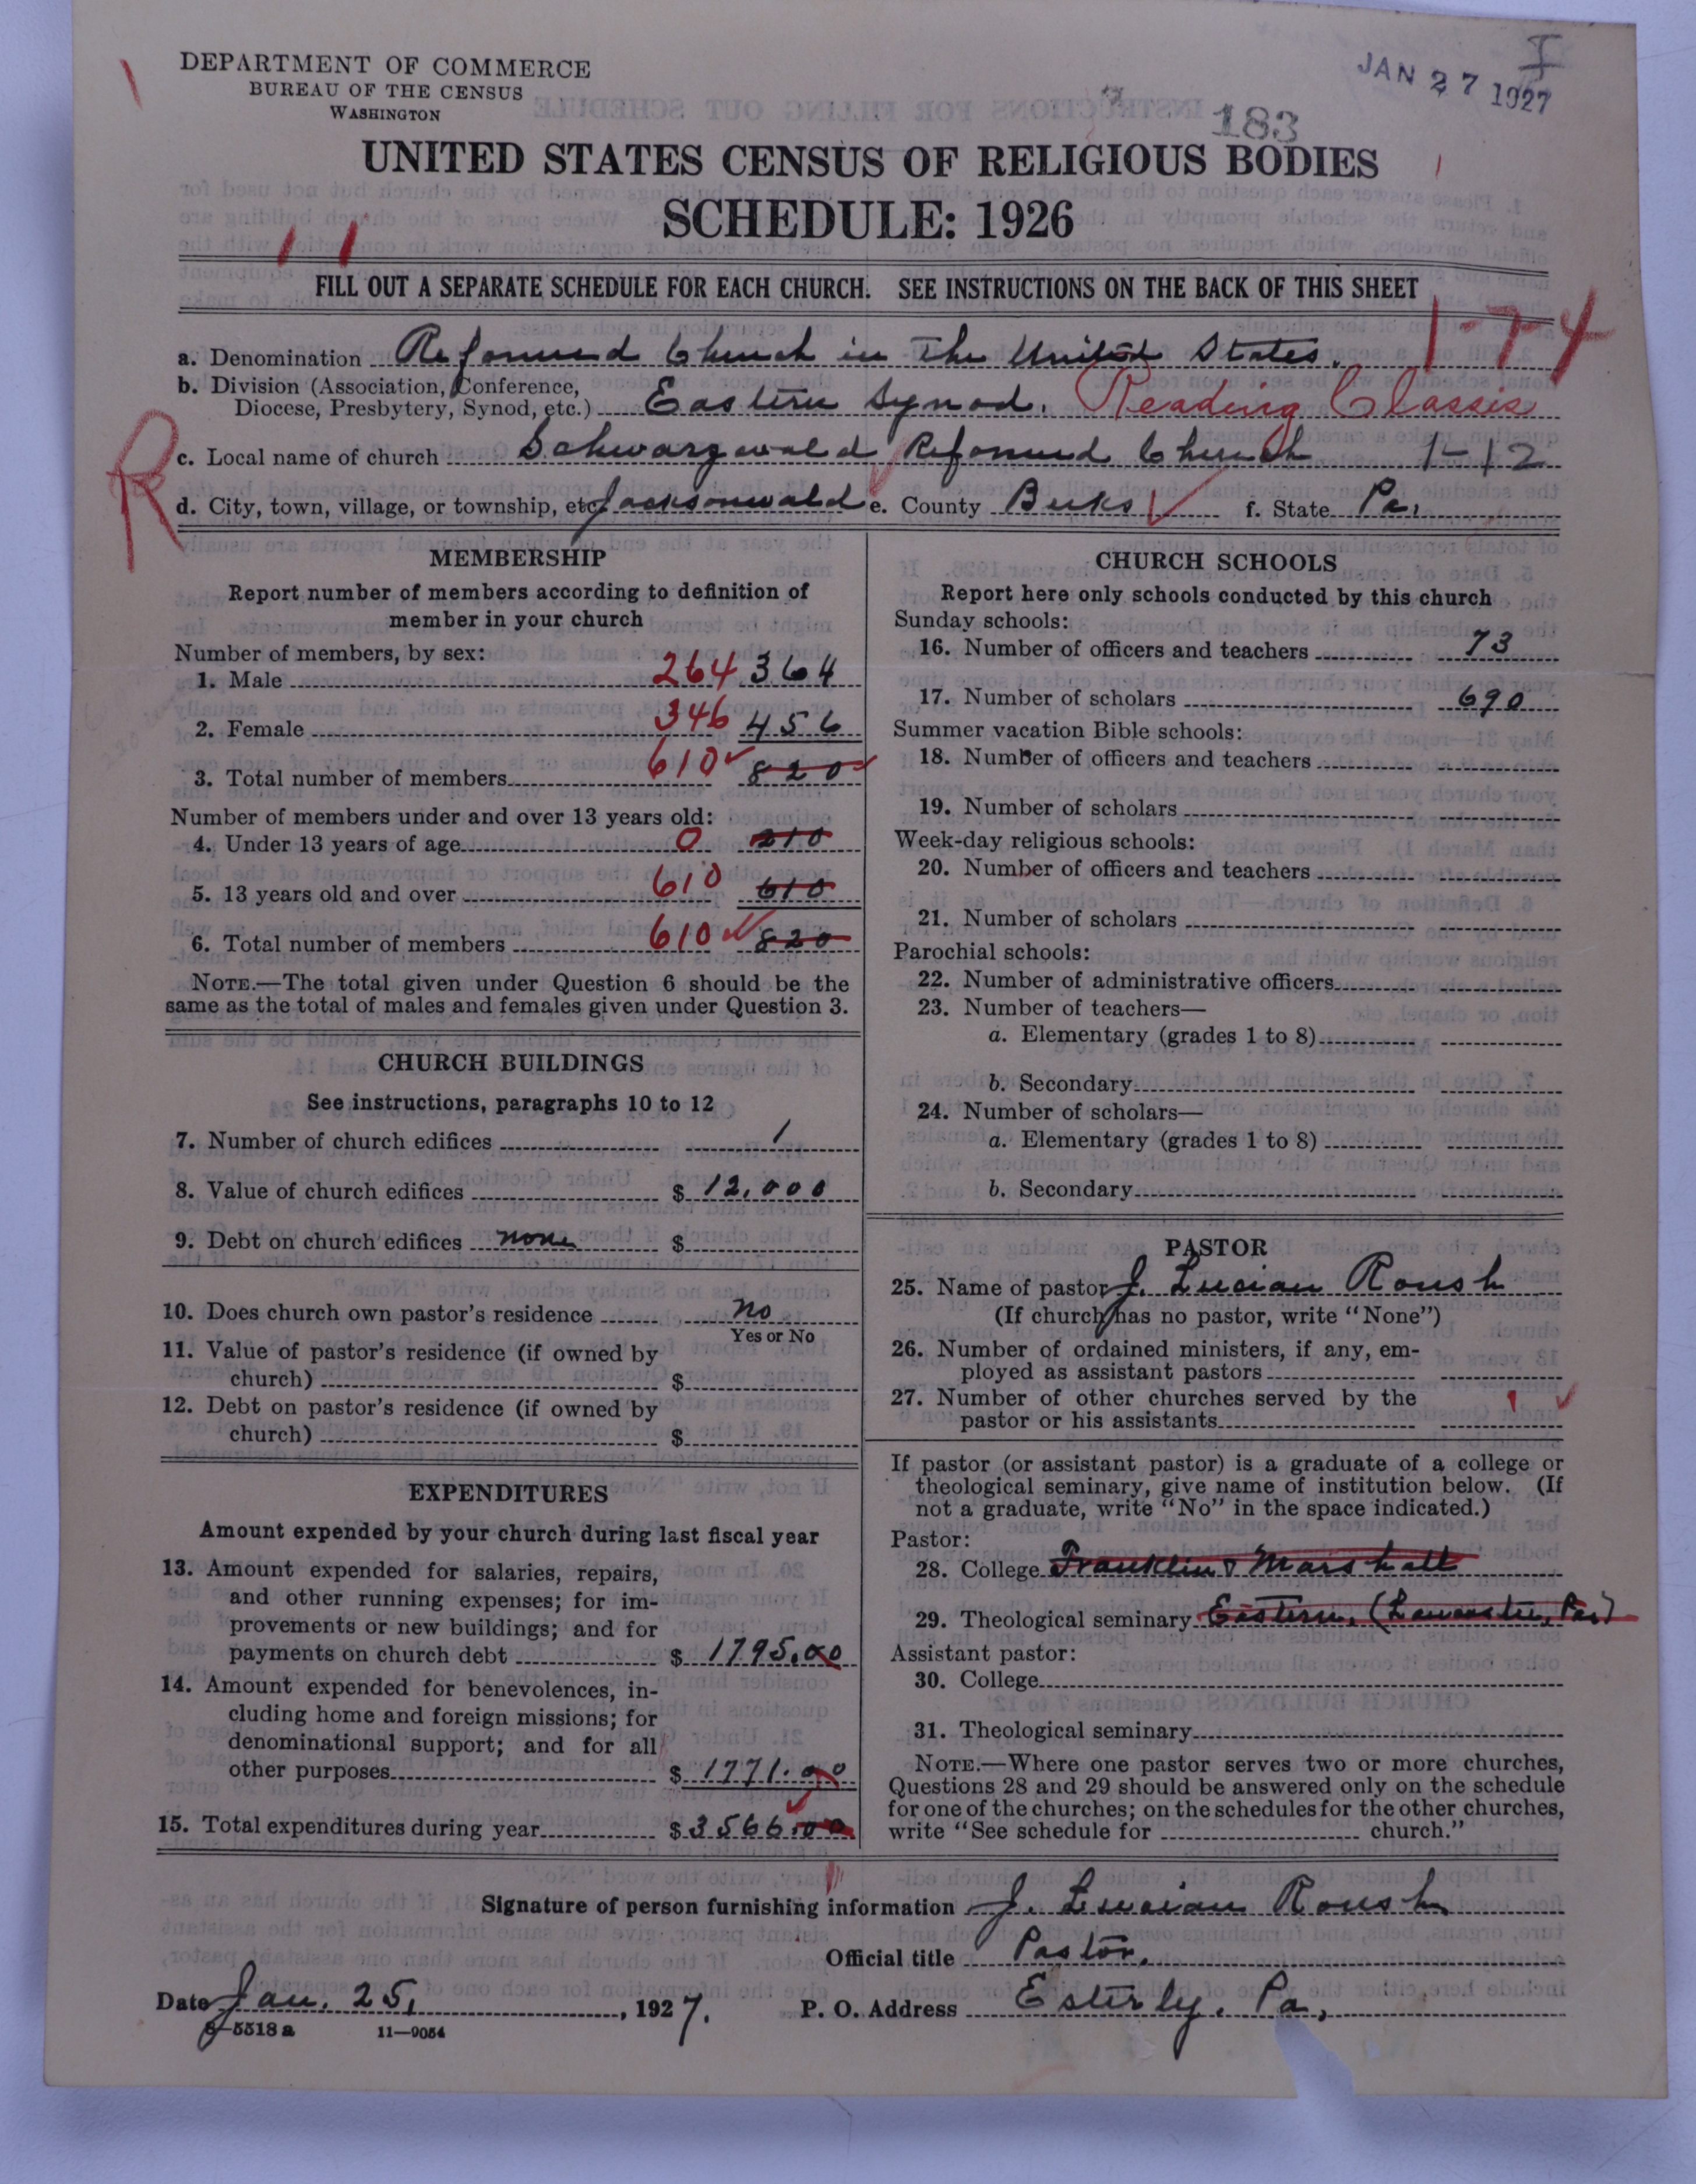 DEPARTMENT OF COMMERCE
BUREAU OF THE CENSUS
WASHINGTON
JAN 27 1927
I
183
UNITED STATES CENSUS OF RELIGIOUS BODIES
SCHEDULE: 1926
FILL OUT A SEPARATE SCHEDULE FOR EACH CHURCH. SEE INSTRUCTIONS ON THE BACK OF THIS SHEET
1-7-4
a. Denomination Reformed Church in The United States.
b. Division (Association, Conference,
Diocese, Presbytery, Synod, etc.) Eastern Synod. Reading Classis
R
c. Local name of church Schwarzwald Reformed Church 1-12
d. City, town, village, or township, etc. Jacksonwald e. County Berks f. State Pa.
MEMBERSHIP
Report number of members according to definition of
member in your church
Number of members, by sex:
1. Male 264 364
2. Female 346 456
3. Total number of members 610 820
Number of members under and over 13 years old:
4. Under 13 years of age 0 210
5. 13 years old and over 610 610
6. Total number of members 610 820
NOTE.—The total given under Question 6 should be the
same as the total of males and females given under Question 3.
CHURCH BUILDINGS
See instructions, paragraphs 10 to 12
7. Number of church edifices 1
8. Value of church edifices $ 12,000
9. Debt on church edifices none $
10. Does church own pastor's residence no
Yes or No
11. Value of pastor's residence (if owned by
church) $
12. Debt on pastor's residence (if owned by
church) $
EXPENDITURES
Amount expended by your church during last fiscal year
13. Amount expended for salaries, repairs,
and other running expenses; for im-
provements or new buildings; and for
payments on church debt $ 1795.00
14. Amount expended for benevolences, in-
cluding home and foreign missions; for
denominational support; and for all
other purposes $ 1771.00
15. Total expenditures during year $ 3566.00
CHURCH SCHOOLS
Report here only schools conducted by this church
Sunday schools:
16. Number of officers and teachers 73
17. Number of scholars 690
Summer vacation Bible schools:
18. Number of officers and teachers
19. Number of scholars
Week-day religious schools:
20. Number of officers and teachers
21. Number of scholars
Parochial schools:
22. Number of administrative officers
23. Number of teachers—
a. Elementary (grades 1 to 8)
b. Secondary
24. Number of scholars—
a. Elementary (grades 1 to 8)
b. Secondary
PASTOR
25. Name of pastor J. Lucian Roush
(If church has no pastor, write "None")
26. Number of ordained ministers, if any, em-
ployed as assistant pastors
27. Number of other churches served by the
pastor or his assistants 1
If pastor (or assistant pastor) is a graduate of a college or
theological seminary, give name of institution below. (If
not a graduate, write "No" in the space indicated.)
Pastor:
28. College Franklin & Marshall
29. Theological seminary Eastern, (Lancaster, Pa.)
Assistant pastor:
30. College
31. Theological seminary
NOTE.—Where one pastor serves two or more churches,
Questions 28 and 29 should be answered only on the schedule
for one of the churches; on the schedules for the other churches,
write "See schedule for church."
Signature of person furnishing information J. Lucian Roush
Official title Pastor.
Date Jan. 25, 1927. P. O. Address Esterly, Pa.
8-5518 a 11-9054